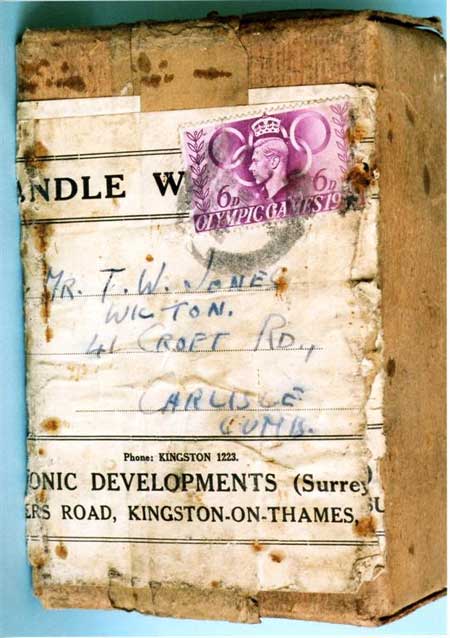 ANDLE W
6D 6D
OLYMPIC GAMES 19
MR. T. W. JONES
WILTON.
41 CROFT RD.,
CARLISLE
CUMB.
Phone: KINGSTON 1223.
ONIC DEVELOPMENTS (Surrey
ERS ROAD, KINGSTON-ON-THAMES,